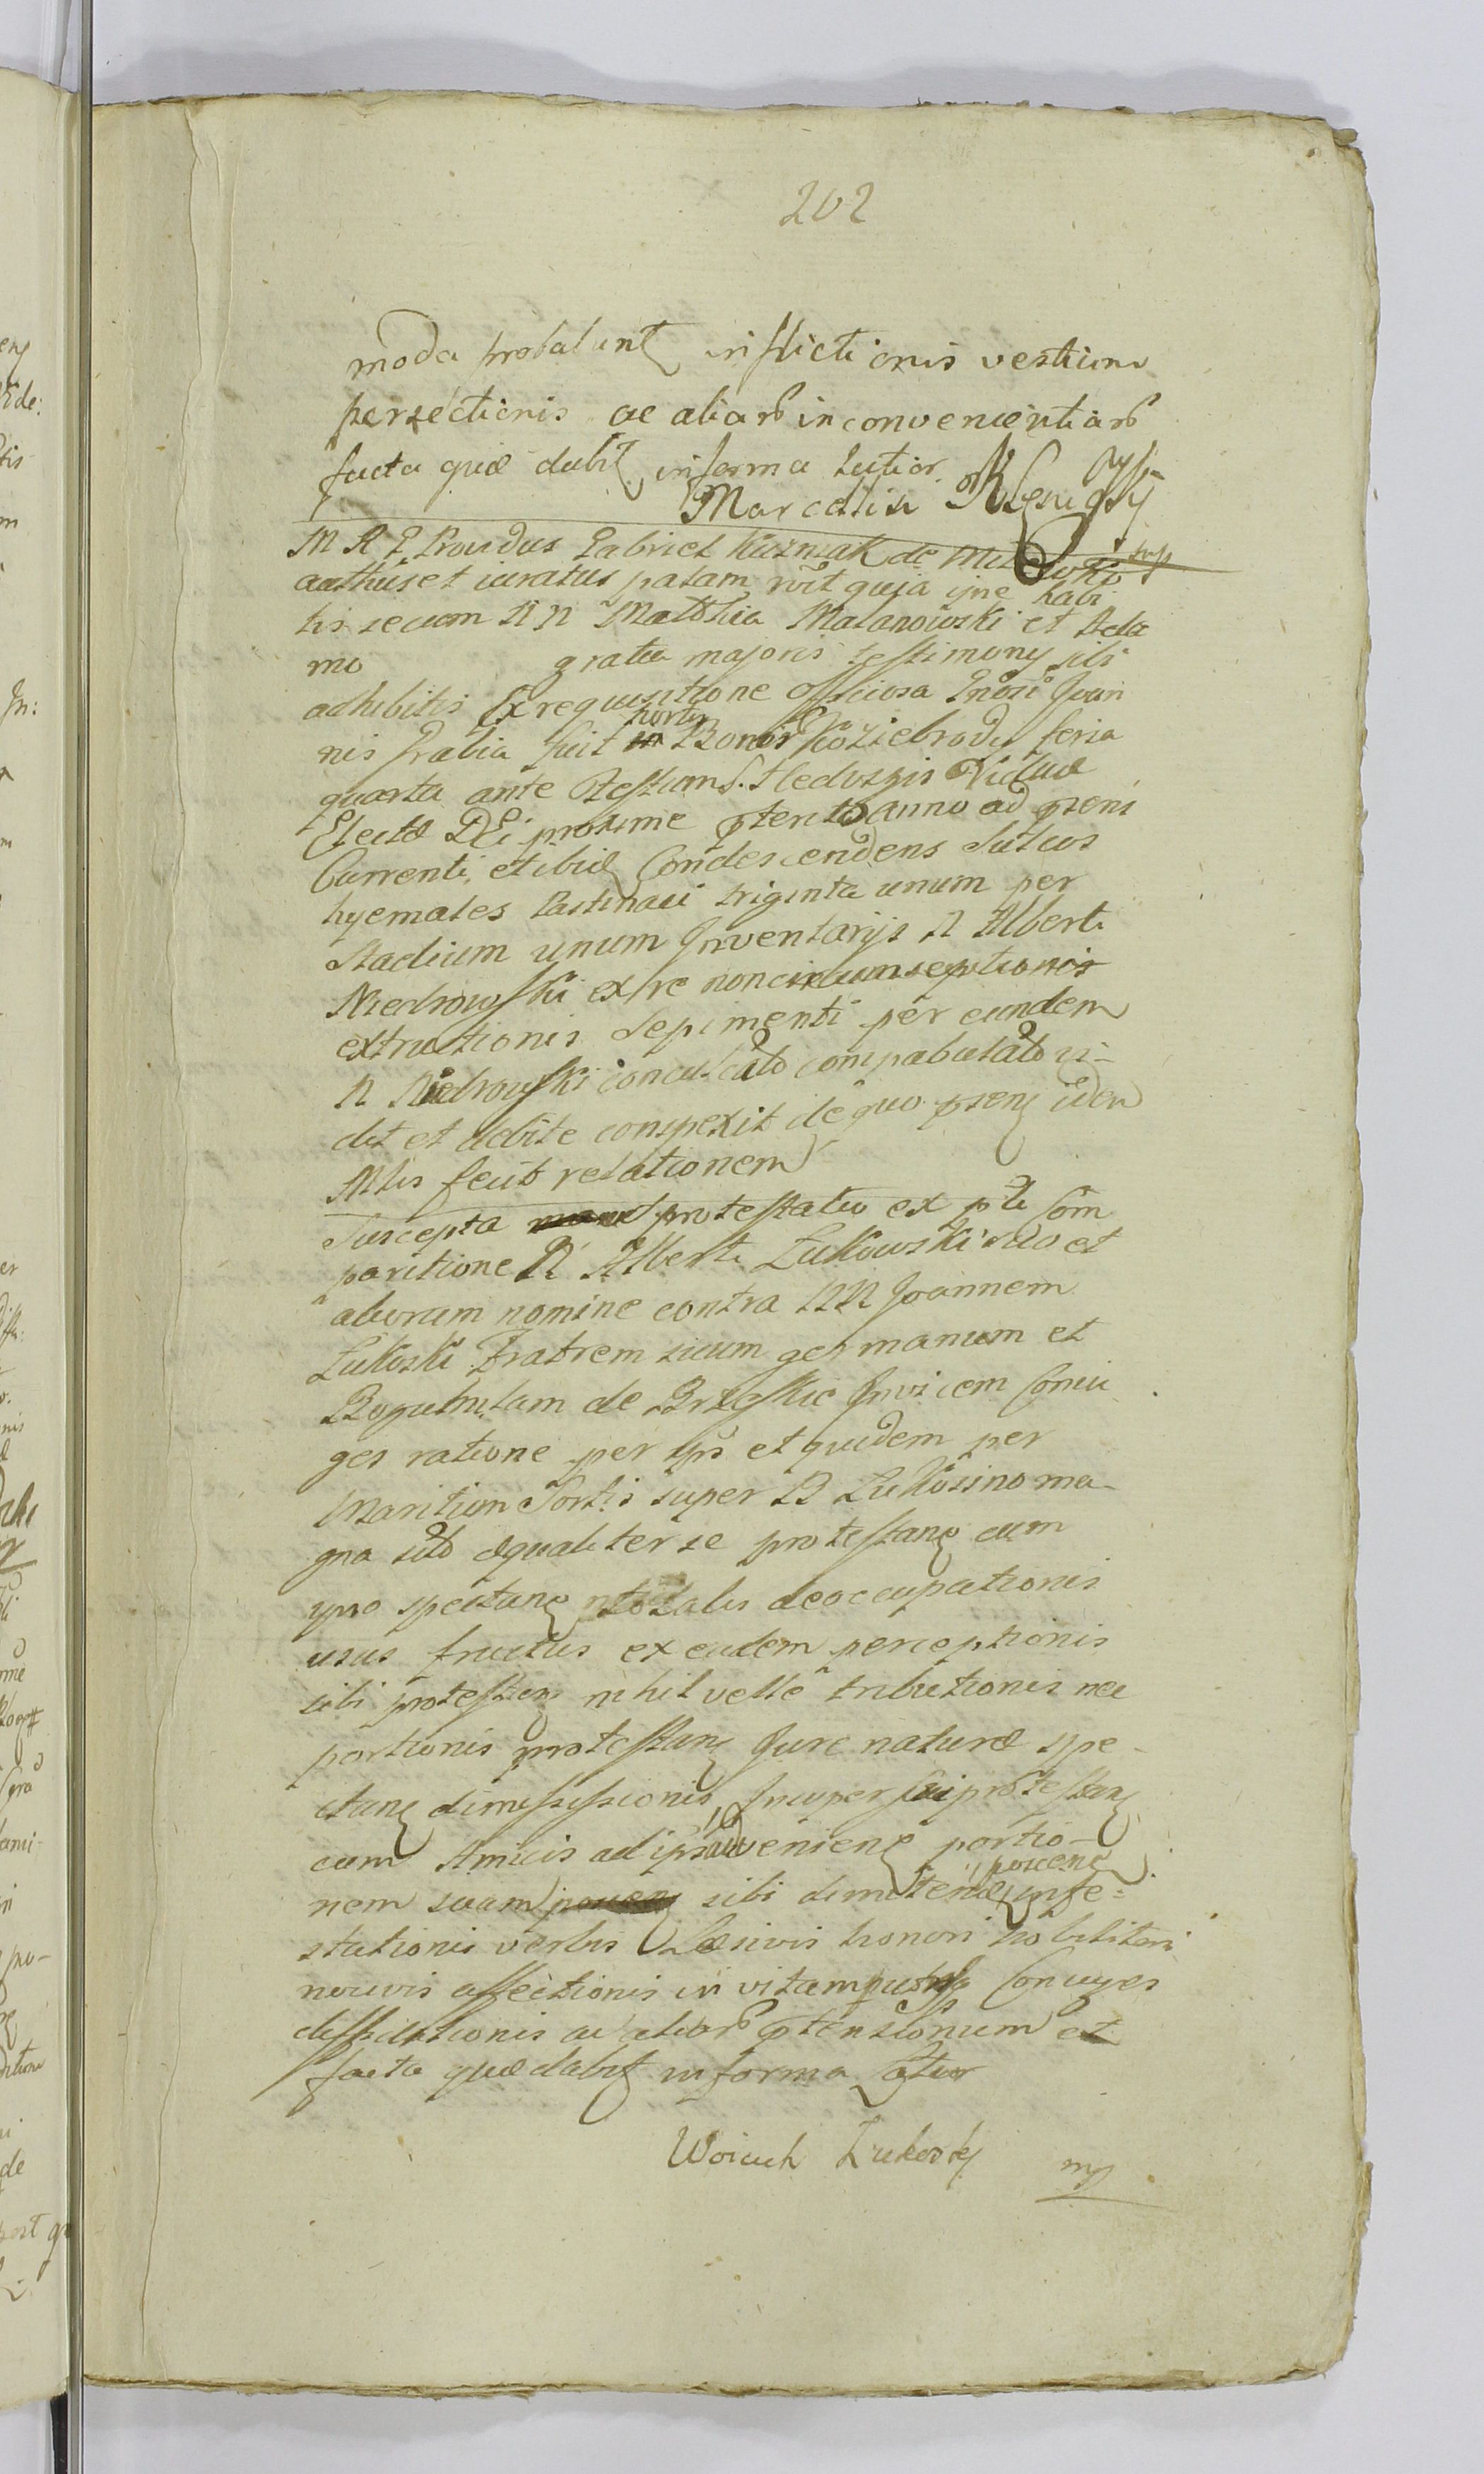 202
moda probabunt inflictionis vestium
persectionis ac aliar inconvenientiar
facta quæ dabit in forma latior
Marcelin
M R G Providus Gabriel Kuzniak de
authus et iuratus palam rōt quia ipse habi
tis secum N N Matthia Malanowski et Ada
mo gratia majoris testimony sibi
adhibitis Ex requisitione officiosa Gnosi Joan
nis Grabia fuit in Bonor Koziebrody feria
quarta ante Festum S. Hedvigis Viduæ
Electæ DEi proxime pterito anno ad prens
Currenti, et ibid Condescendens Sulcos
hyemales Pastinaci triginta unum per
Stadium unum Inventarys N Alberti
Niedrowski ex re non circumseptionis
extructionis Sepimenti per eundem
N Niedrowski conculcato compabulato vi-
dit et debite conspexit de quo prens idem
Mlis fecit relationem
Suscepta protestatio ex pte Com
paritione N Alberti Lukowski suo et
aliorum nomine contra NN Joannem
Lukoski Fratrem suum germanum et
Bogumilam de Brzeskie Invicem Coniu
ges ratione per ips et quidem per
Maritum Sortis super B Lukosino ma-
gna sito æqualiter se protestans cum
ipso spectans totalis deoccupationis
usus fructus ex eadem perceptionis
sibi protestan nihil velle tributionis nec
portionis protestans Jure naturæ spe-
ctans dimissionis, Insuper sui protestans
cum Amicis ad ips adveniens portio-
nem suam poscens sibi dimitendas infe=
stationis verbis Læsivis honori nobilitari
nocivis affectionis in vitam Conuges
diffidationis ac alior ptensionum et
facta quæ dabit in forma latior
Woiciech Lukoski mp